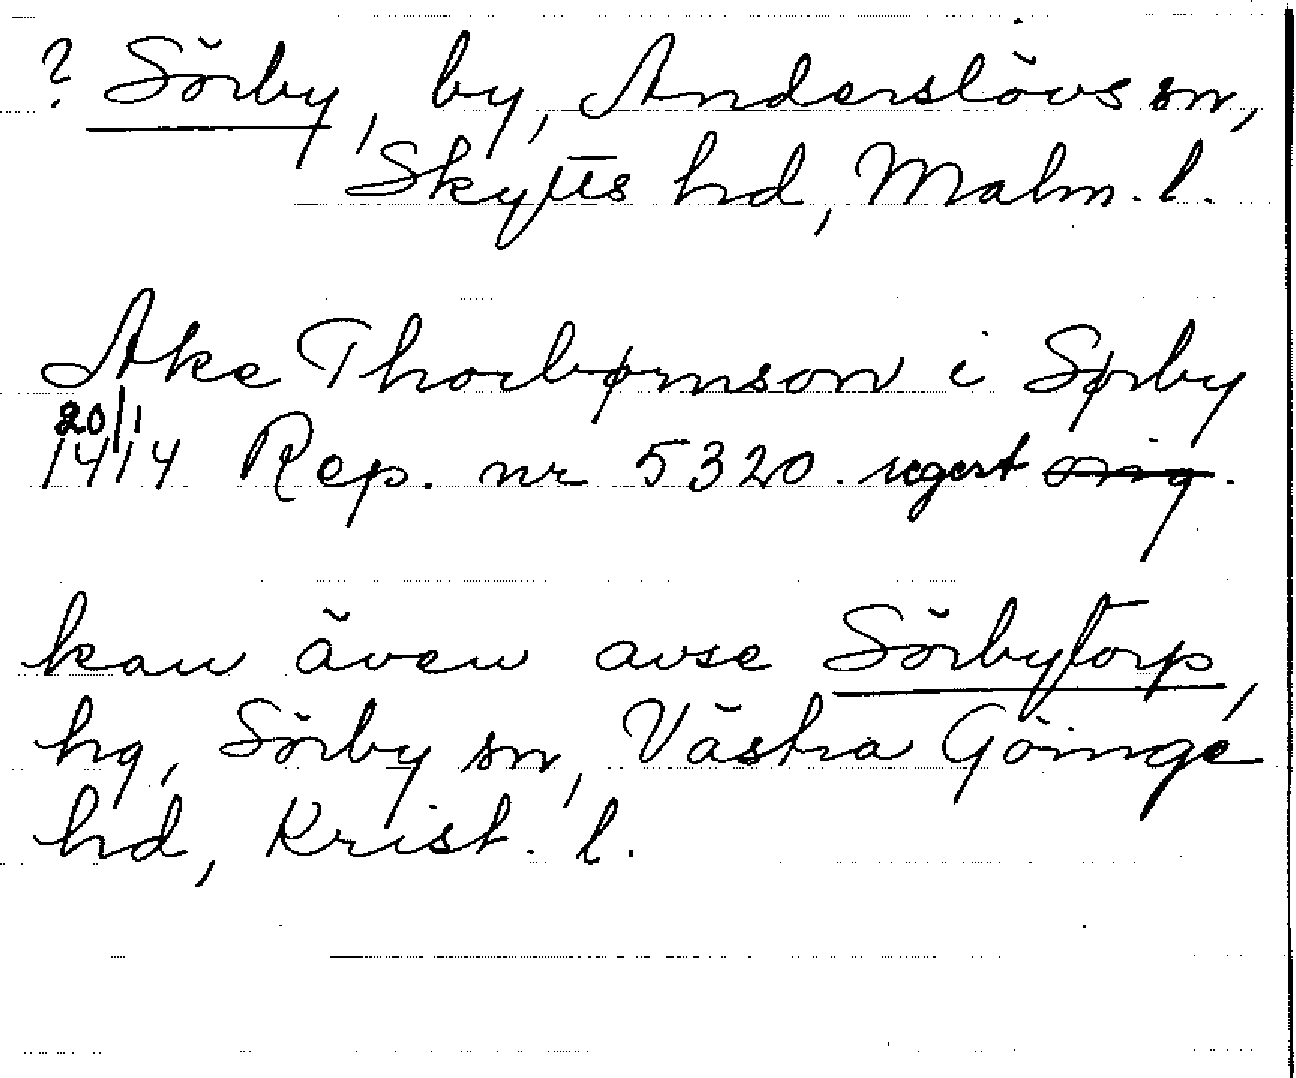 ? Sörby, by, Anderslövs sn,
Skytts hd, Malm. l.
Ake Thorbørnson i Sørby
20/1
1414 Rep. nr 5320. regest orig.
kan även avse Sörbytorp,
hg, Sörby sn, Västra Göinge
hd, Krist. l.